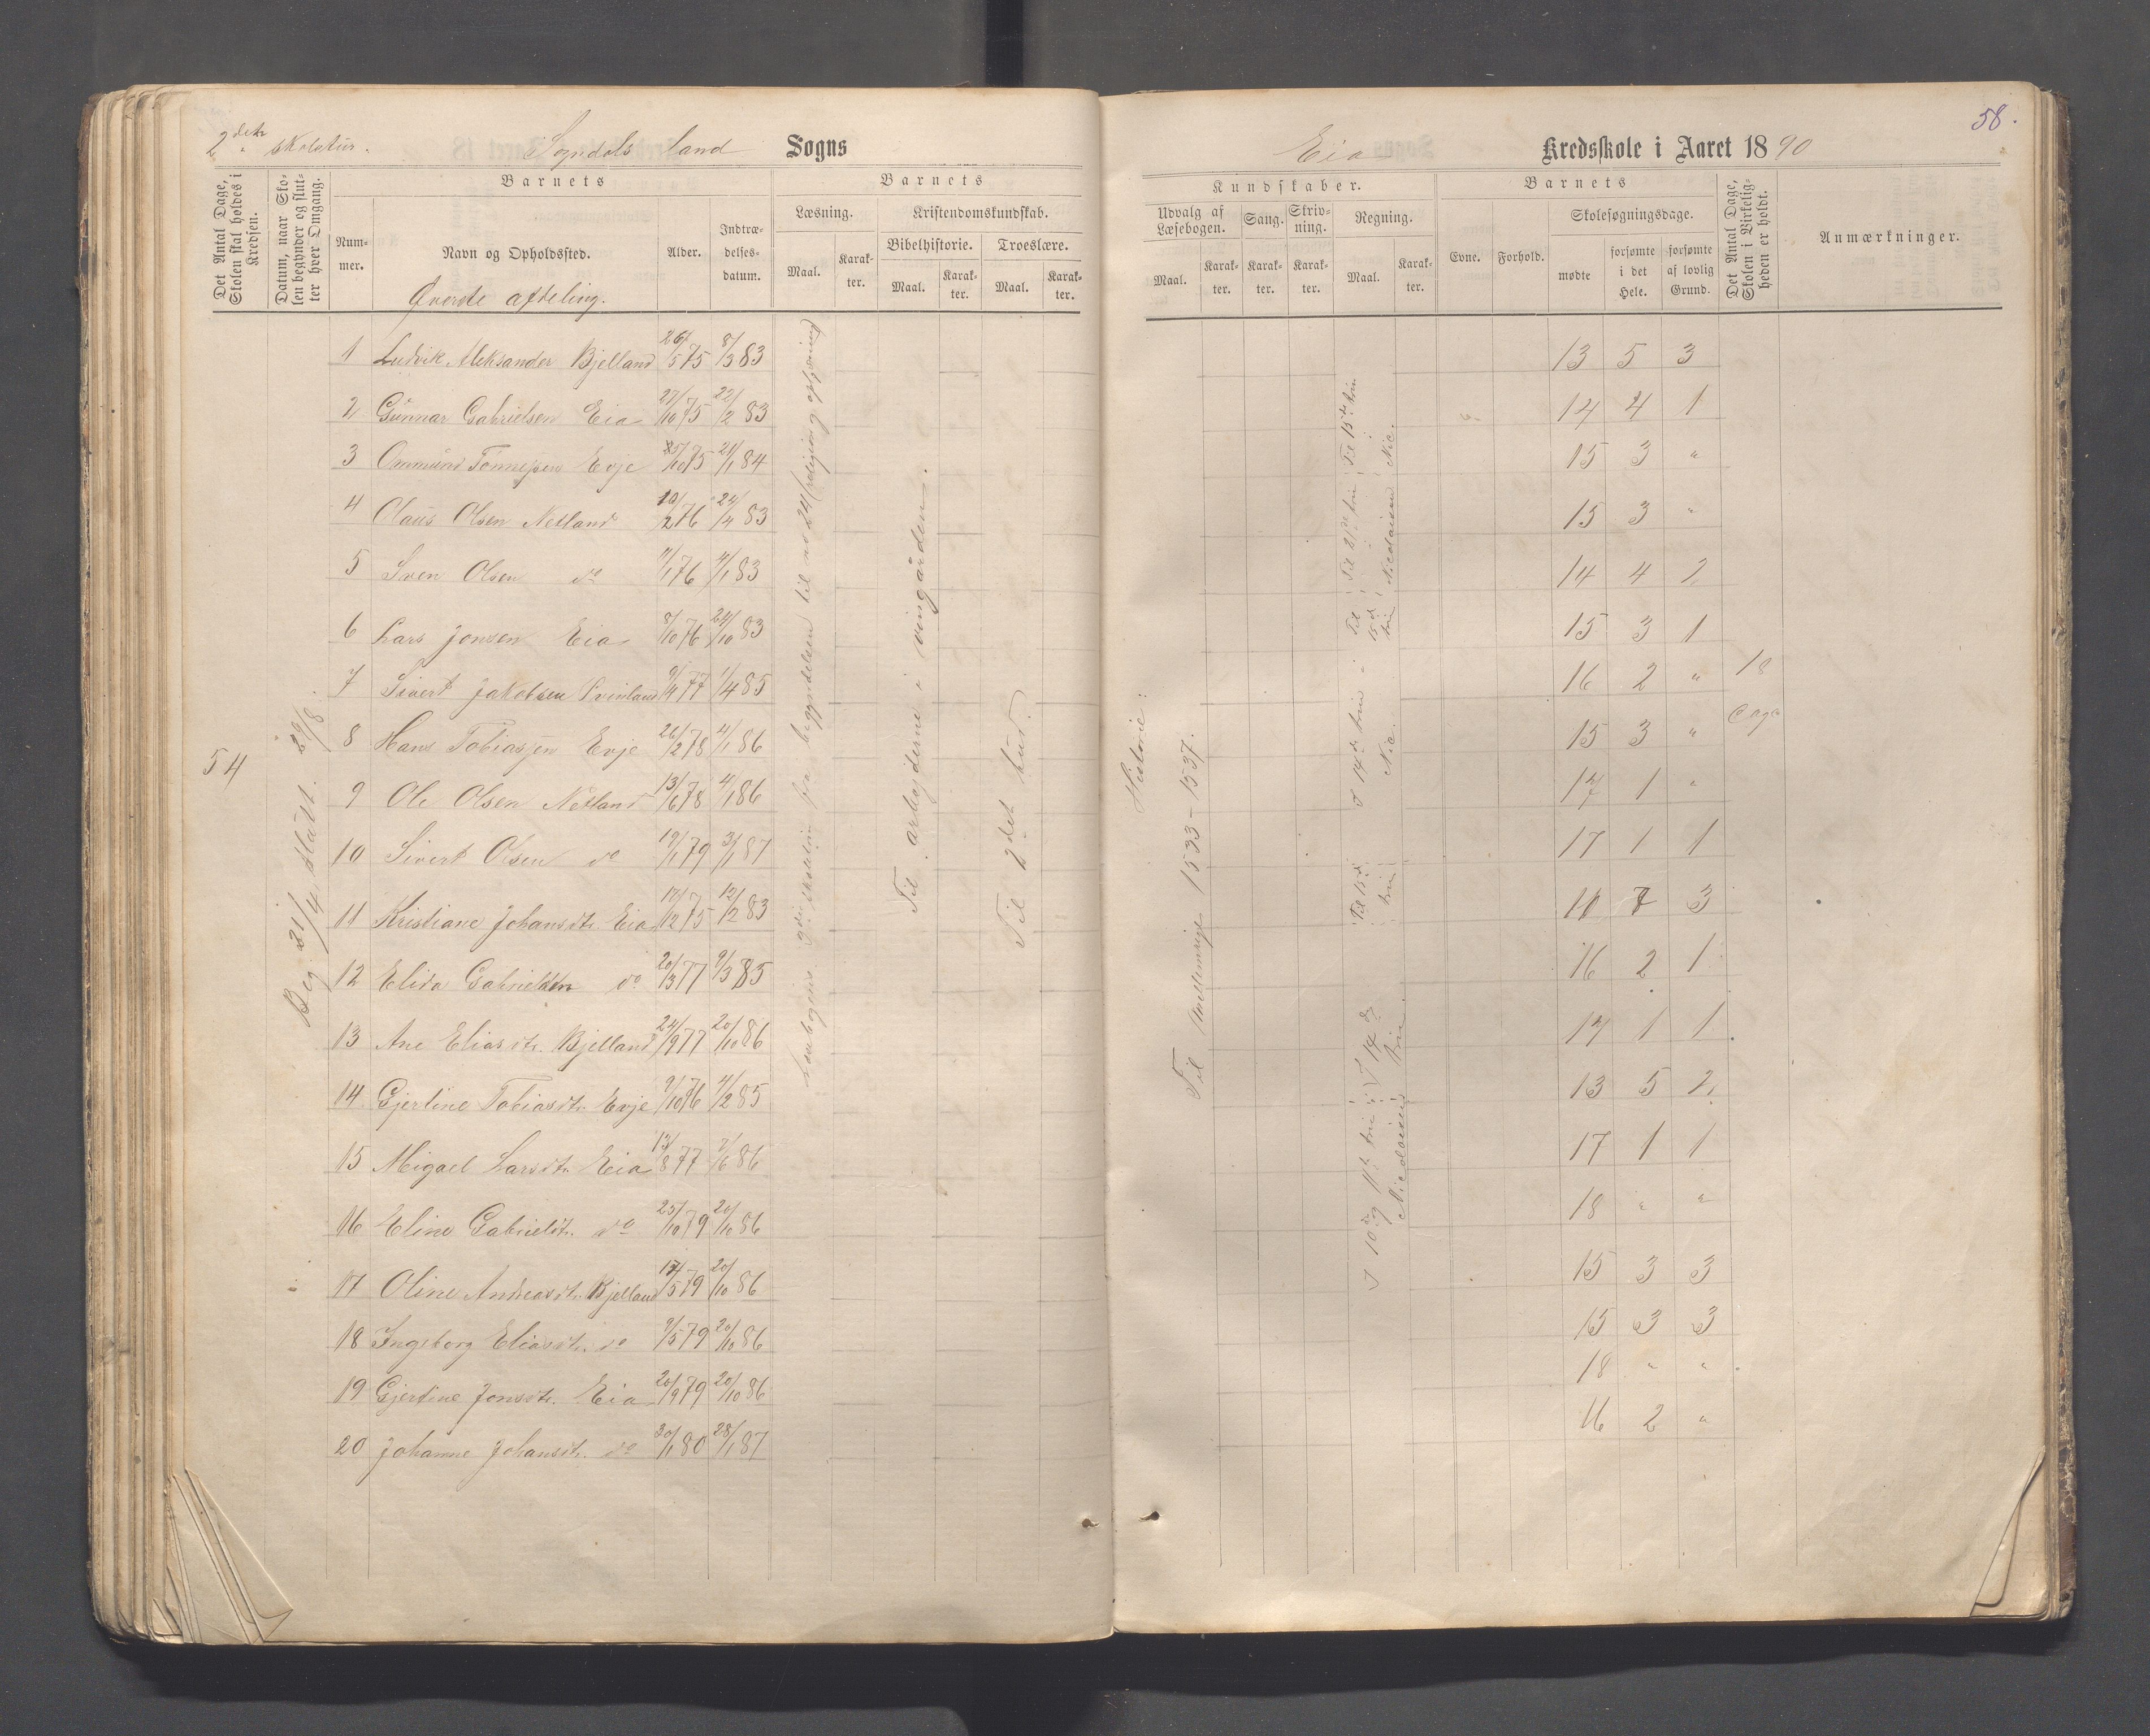 2det skoletur. Sogndals Land Sogns
Eia Kredsskole i Aaret 1890
58.
Det Antal Dage, Skolen skal holdes i Kredsen.
Datum, naar Skolen begynder og slutter hver Omgang.
Barnets
Nummer.
Navn og Opholdssted.
Alder.
Indtrædelsesdatum.
Barnets
Læsning.
Maal.
Karakter.
Kristendomskundskab.
Bibelhistorie.
Maal.
Karakter.
Troeslære.
Maal.
Karakter.
Kundskaber.
Udvalg af Læsebogen.
Maal.
Karakter.
Sang.
Karakter.
Skrivning.
Karakter.
Regning.
Maal.
Karakter.
Barnets
Evne.
Forhold.
Skolesøgningsdage.
mødte
forsømte i det Hele.
forsømte af lovlig Grund.
Det Antal Dage, Skolen i Virkeligheden er holdt.
Anmærkninger.
Øverste afdeling.
54
Beg. 21/4 slutt. 29/8.
1 Ludvik Aleksander Bjelland 26/5 75 8/3 83 13 5 3
2 Gunnar Gabrielsen Eia 27/10 75 22/2 83 14 4 1
3 Ommund Tønnesen Evje 25/10 75 21/1 84 15 3 "
4 Olaus Olsen Netland 10/2 76 24/4 83 15 3 "
5 Sven Olsen do 11/1 76 4/1 83 14 4 2
6 Lars Jonsen Eia 8/10 76 24/10 83 15 3 1
7 Sivert Jakobsen 9/4 77 1/4 85 16 2 " 18
8 Hans Tobiassen Evje 26/2 78 4/1 86 15 3 " Dage
9 Ole Olsen Netland 13/6 78 4/1 86 17 1 "
10 Sivert Olsen do 19/1 79 3/1 87 17 1 1
11 Kristiane Johansdtr. Eia 17/12 75 12/2 83 10 7 3
12 Elida Gabrielsen do 20/3 77 9/3 85 16 2 1
13 Ane Eliasdtr. Bjelland 24/9 77 20/10 86 17 1 1
14 Gjertine Tobiasdtr. Evje 9/10 76 4/2 85 13 5 2
15 Migael Larsdtr. Eia 13/8 77 7/6 86 17 1 1
16 Eline Gabrielsdtr. do 25/10 79 20/10 86 18 " "
17 Oline Andreasdtr. Bjelland 17/5 79 20/10 86 15 3 3
18 Ingeborg Eliasdtr. do 9/5 79 20/10 86 15 3 3
19 Gjertine Jonsdtr. Eia 20/9 79 20/10 86 18 " "
20 Johanne Johansdtr. do 30/1 80 28/1 87 16 2 "
Læsebogens skoletrin fra begyndelsen til no 24
Til arbejderne i vingården.
Til 2det bud.
Historie:
Til 1533-1537.
Til 15de trin Nic.
Til 15de trin
I 14de trin Nic.
Til 15de trin
I 10de og 11te trin I 14de trin